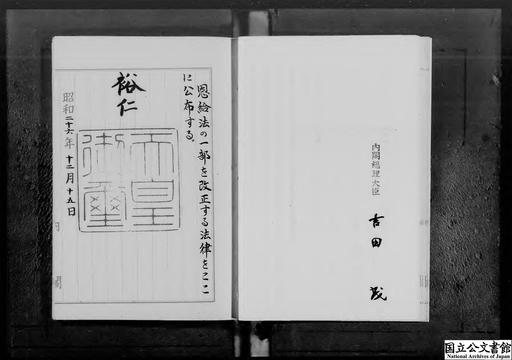 恩給法の一部を改正する法律をここ
に公布する。
裕仁
天皇
御璽
昭和二十六年十二月十五日
内閣総理大臣
吉田茂
国立公文書館
National Archives of Japan